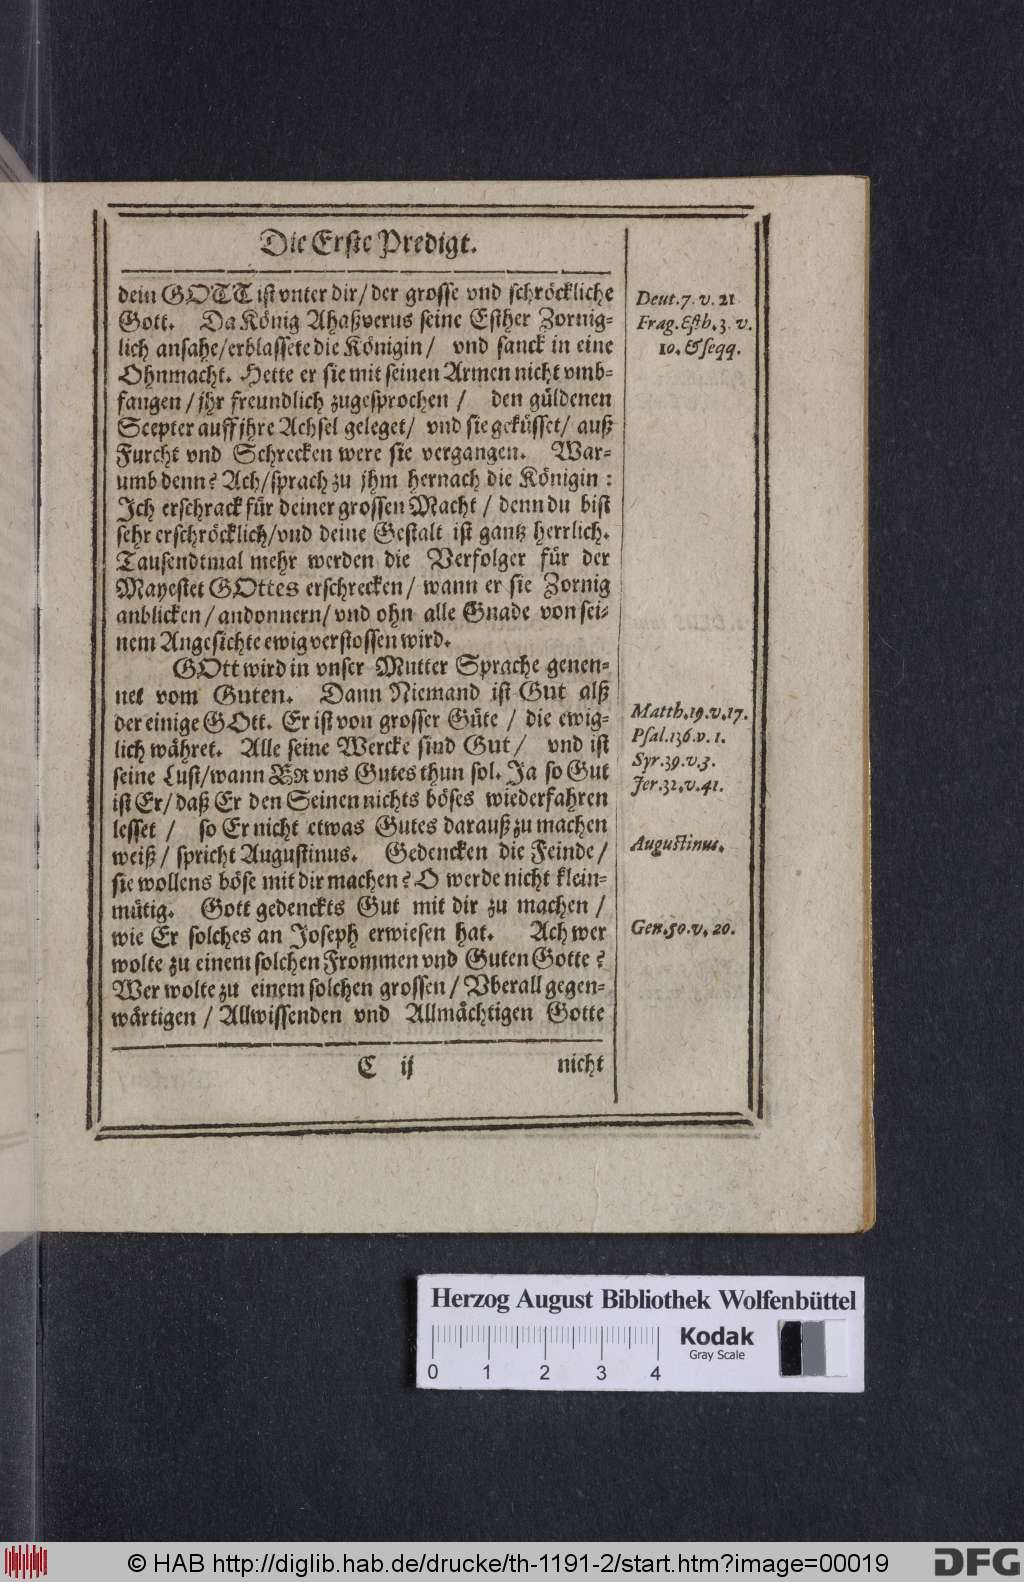 Die Erste Predigt.
dein GOTT ist vnter dir/ der grosse vnd schröckliche
Gott. Da König Ahaßverus seine Esther Zornig-
lich ansahe/ erblassete die Königin/ vnd sanck in eine
Ohnmacht. Hette er sie mit seinen Armen nicht vmb-
fangen/ jhr freundlich zugesprochen/ den güldenen
Scepter auff jhre Achsel geleget/ vnd sie geküsset/ auß
Furcht vnd Schrecken were sie vergangen. War-
umb denn? Ach/ sprach zu jhm hernach die Königin:
Ich erschrack für deiner grossen Macht/ denn du bist
sehr erschröcklich/ vnd deine Gestalt ist gantz herrlich.
Tausendtmal mehr werden die Verfolger für der
Mayestet GOttes erschrecken/ wann er sie Zornig
anblicken/ andonnern/ vnd ohn alle Gnade von sei-
nem Angesichte ewig verstossen wird.
GOtt wird in vnser Mutter Sprache genen-
net vom Guten. Dann Niemand ist Gut alß
der einige GOtt. Er ist von grosser Güte/ die ewig-
lich währet. Alle seine Wercke sind Gut/ vnd ist
seine Lust/ wann ER vns Gutes thun sol. Ja so Gut
ist Er/ daß Er den Seinen nichts böses wiederfahren
lesset/ so Er nicht etwas Gutes darauß zu machen
weiß/ spricht Augustinus. Gedencken die Feinde/
sie wollens böse mit dir machen? O werde nicht klein-
mütig. Gott gedenckts Gut mit dir zu machen/
wie Er solches an Joseph erwiesen hat. Ach wer
wolte zu einem solchen Frommen vnd Guten Gotte?
Wer wolte zu einem solchen grossen/ Vberall gegen-
wärtigen/ Allwissenden vnd Allmächtigen Gotte
C ij nicht
Deut. 7. v. 21
Frag. Esth. 3. v.
10. & seqq.
Matth. 19. v. 17.
Psal. 136. v. 1.
Syr. 39. v. 3.
Jer. 32. v. 41.
Augustinus.
Gen. 50. v. 20.
Herzog August Bibliothek Wolfenbüttel
0 1 2 3 4
Kodak
Gray Scale
© HAB http://diglib.hab.de/drucke/th-1191-2/start.htm?image=00019
DFG